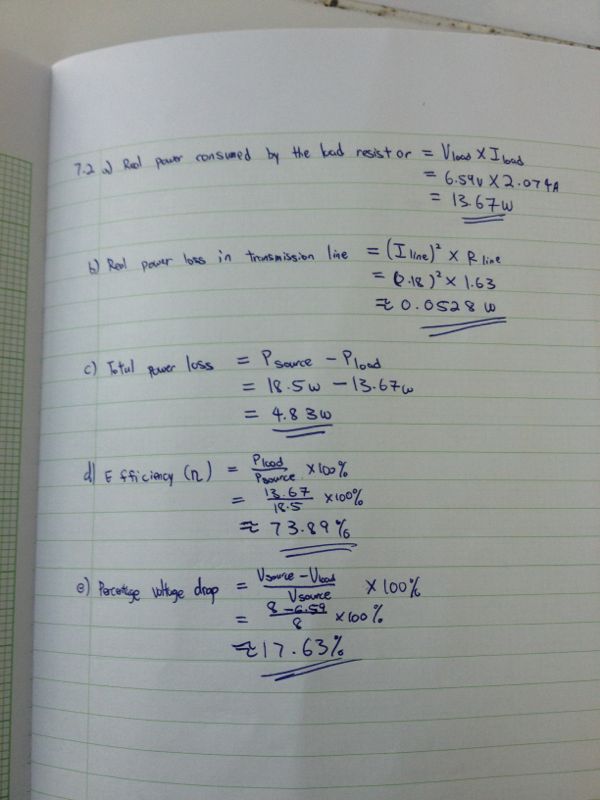 7.2 a) Real power consumed by the load resistor = Vload × Iload
= 6.59v × 2.074A
= 13.67w
b) Real power loss in transmission line = (Iline)² × Rline
= (0.18)² × 1.63
≈ 0.0528 w
c) Total power loss = Psource − Pload
= 18.5w − 13.67w
= 4.83w
d) Efficiency (η) = Pload/Psource × 100%
= 13.67/18.5 × 100%
≈ 73.89%
e) Percentage voltage drop = Vsource − Vload/Vsource × 100%
= 8 − 6.59/8 × 100%
≈ 17.63%